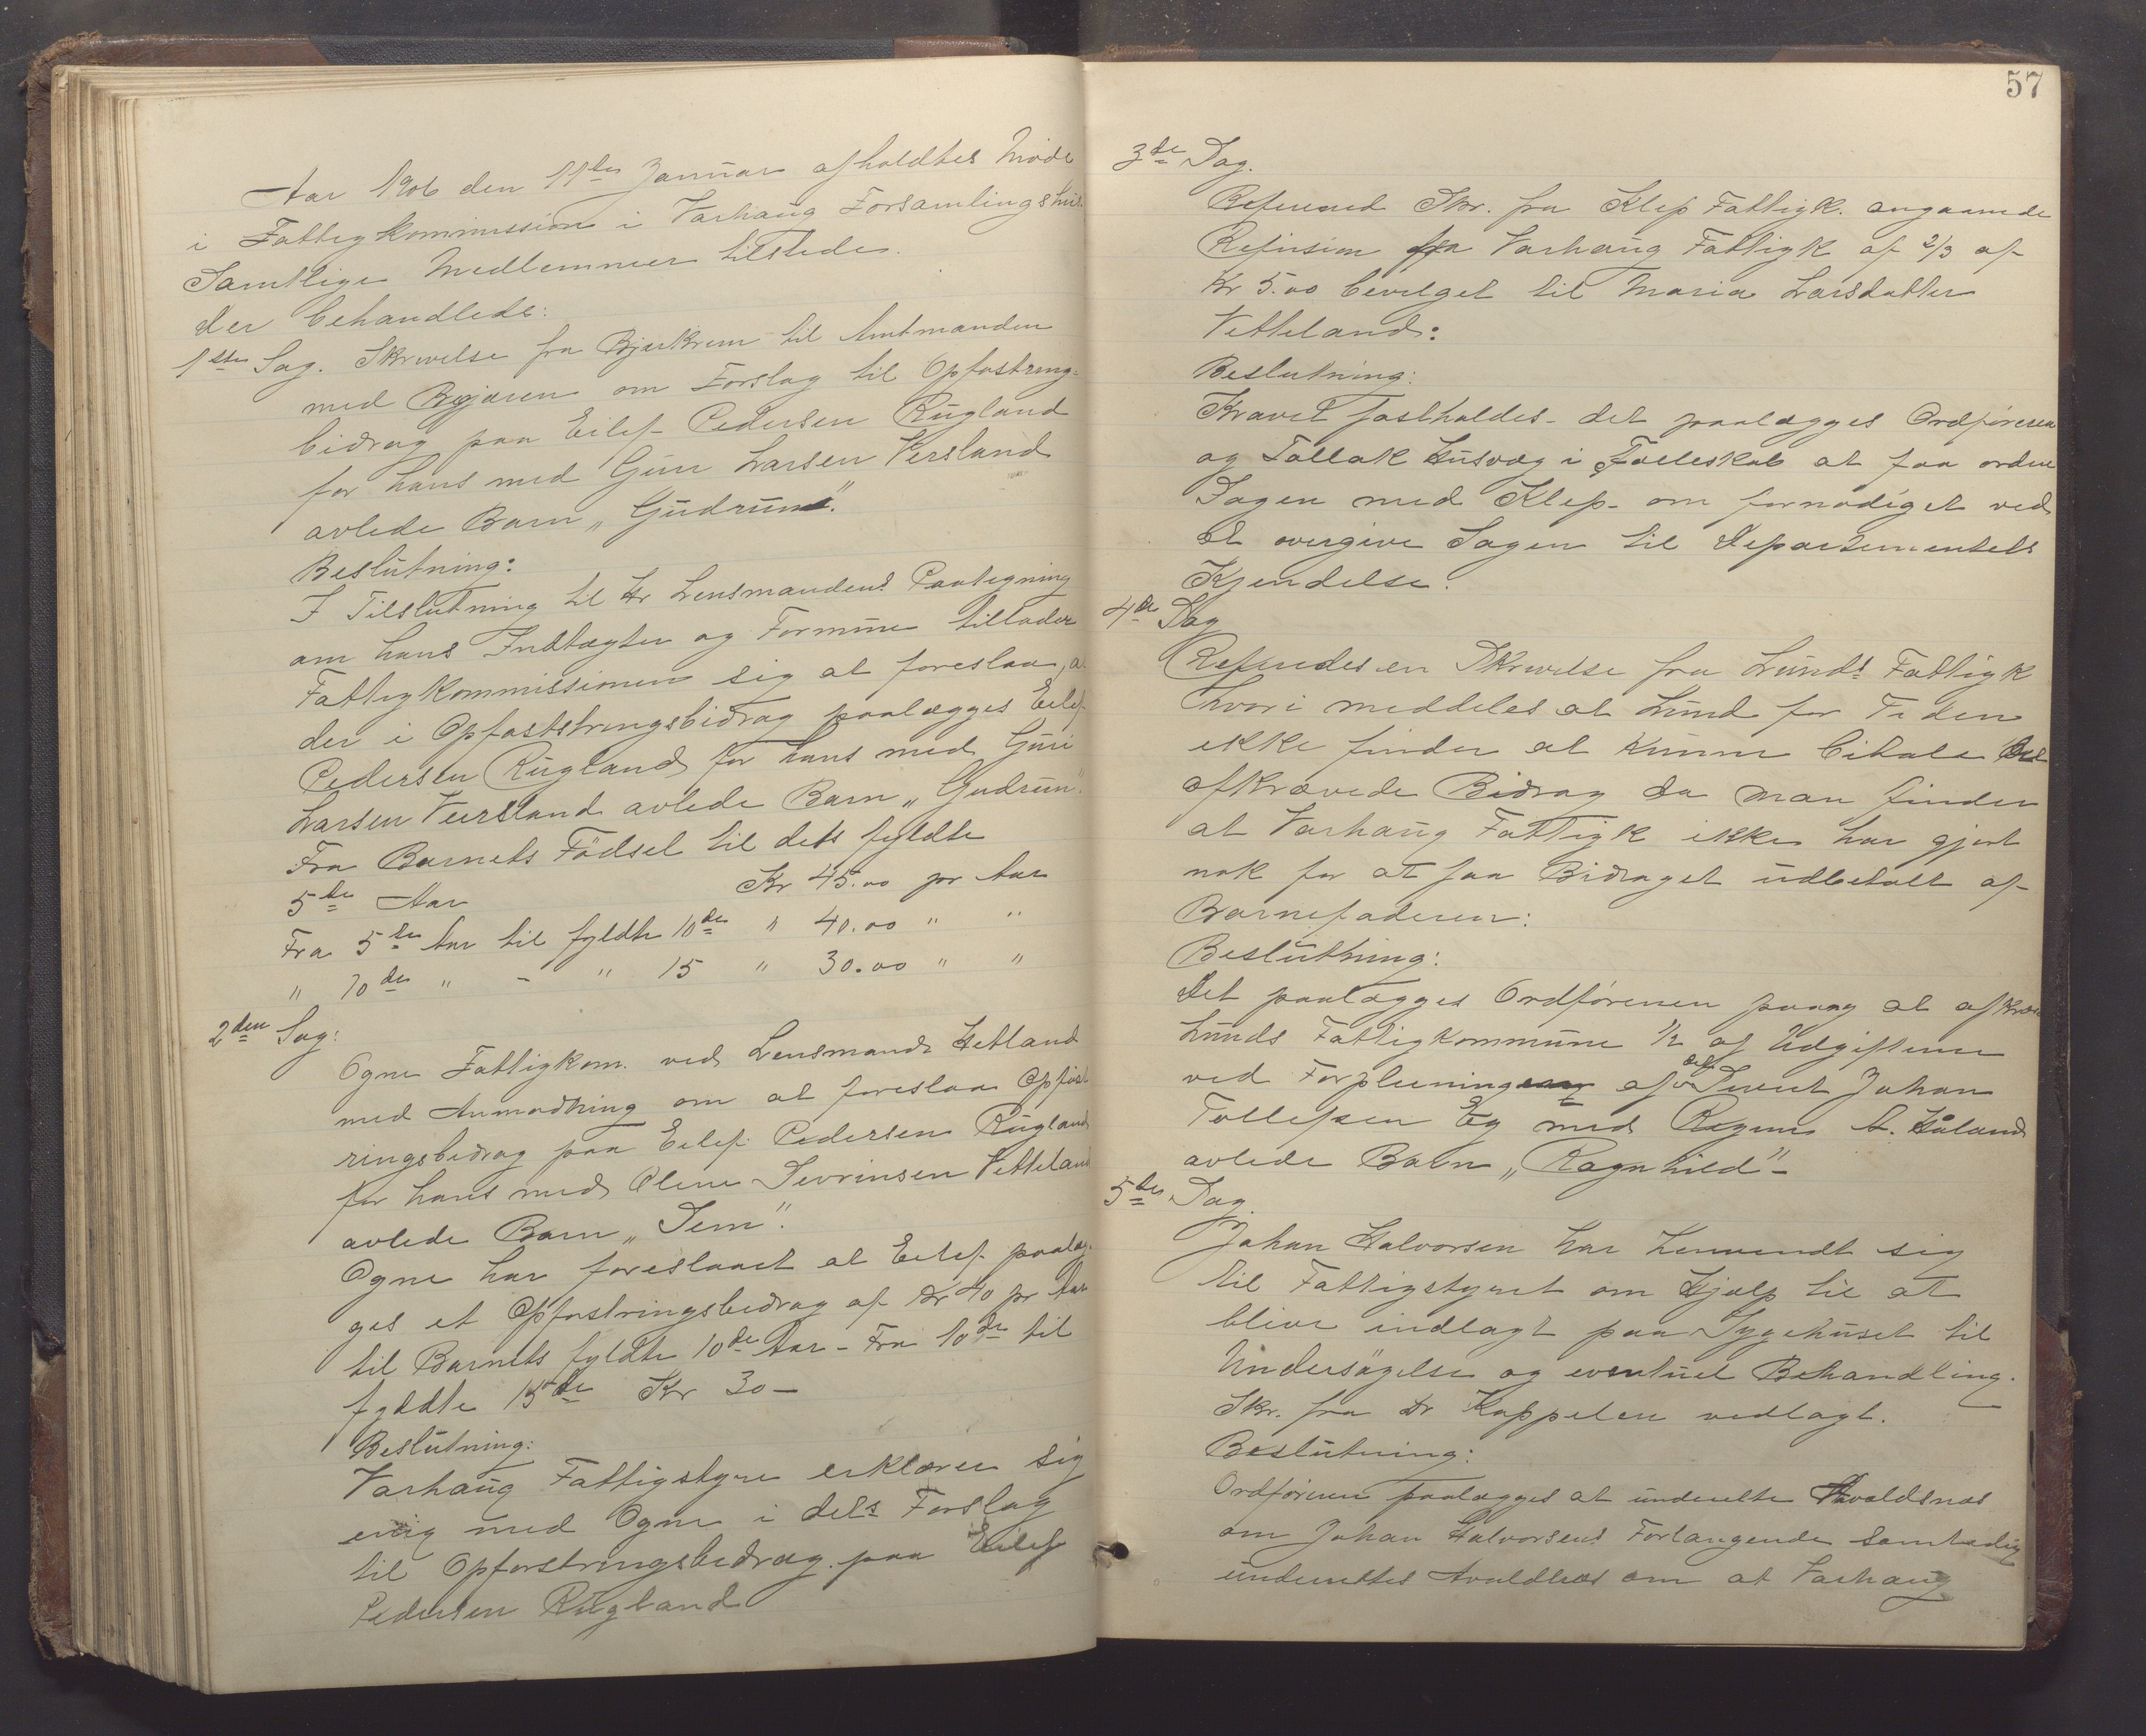 Aar 1906 den 11te Januar afholdtes Møde
i Fattigkommission i Varhaug Forsamlingshus
Samtlige Medlemmer tilstede.
der behandlede:
1ste Sag. Skrivelse fra Bjerkrem til Amtmanden
med Begjæren om Forslag til Opfostrings-
bidrag paa Eilef Pedersen Rugland
for hans med Guri Larsen Versland
avlede Barn „Gudrun".
Beslutning:
I Tilslutning til Hr Lensmandens Paategning
om hans Indtægter og Formue tillader
Fattigkommissionen sig at foreslaa, at
der i Opfoststringsbidrag paalægges Eilef
Pedersen Rugland for hans med Guri
Larsen Veersland avlede Barn „Gudrun".
Fra Barnets Födsel til dets fyldte
5te Aar Kr 45.00 pr Aar
Fra 5te Aar til fyldte 10de " 40.00 " "
" 10de " - " 15 " 30.00 " "
2den Sag:
Ogne Fattigkom. ved Lensmand Hetland
med Anmodning om at foreslaa Opfost
ringsbidrag paa Eilef Pedersen Rugland
for hans med Olene Sevrinsen Vetteland
avlede Barn „Sem".
Ogne har foreslaaet at Eilef paalæg-
ges et Opfostringsbidrag af Kr 40 pr Aar
til Barnets fyldte 10de Aar - Fra 10de til
fyldte 15de Kr 30 -
Beslutning:
Varhaug Fattigstyre erklærer sig
enig med Ogne i dets Forslag
til Opforstringsbidrag paa Eilef
Pedersen Rugland
57
3de Sag.
Referered Skr. fra Klep Fattigk. angaaende
Refusion fra Varhaug Fattigk af 2/3 af
Kr 5.00 bevilget til Maria Larsdatter
Vetteland:
Beslutning:
Kravet fastholdes - det paalægges Ordføreren
og Tollak Husvæg i Fælleskab at faa ordne
Sagen med Klep - om fornødiget ved
at overgive Sagen til Departementets
Kjendelse.
4de Sag
Referedes en Skrivelse fra Lunds Fattigk
hvori meddeles at Lund for Tiden
ikke finder at kunne bitale det
afkrævede Bidrag da man finder
at Varhaug Fattigk ikke har gjort
nok for at faa Bidraget udbetalt af
Barnefaderen:
Beslutning:
Det paalægges Ordføreren paany at afkræve
Lunds Fattigkommune 1/2 af Udgifterne
ved Forpleining af det Sivert Johan
Tollefsen Eg med Regine A. Håland
avlede Barn „Ragnhild" -
5te Sag.
Johan Halvorsen har henvendt sig
til Fattigstyret om Hjælp til at
blive indlagt paa Sygehuset til
Undersögelse og eventuel Behandling.
Skr. fra Dr Kappelen vedlagt.
Beslutning:
Ordføreren paalægges at underrette Avaldsnæs
om Johan Halvorsens Forlangende samtidig
underrettes Avaldsnes om at Varhaug